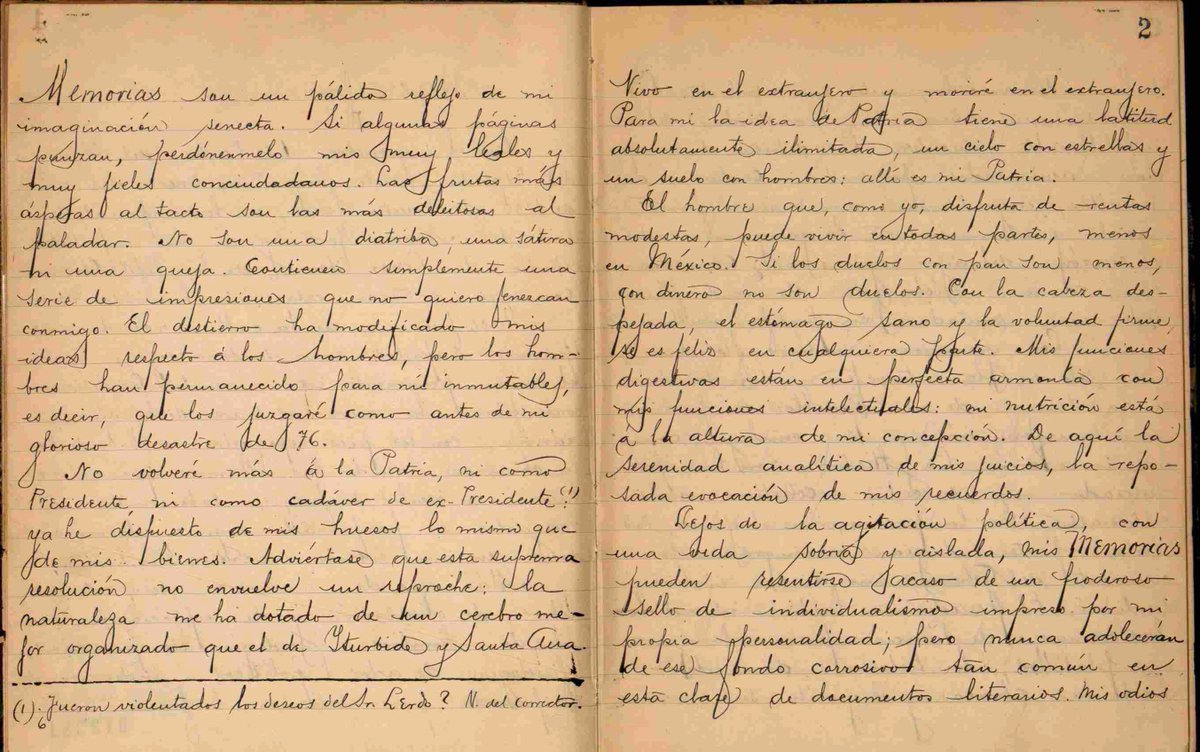 Memorias son un pálido reflejo de mi
imaginación senecta. Si algunas páginas
punzan, perdónenmelo mis muy leales y
muy fieles conciudadanos. Las frutas más
ásperas al tacto son las más deleitosas al
paladar. No son una diatriba, una sátira
ni una queja. Contienen simplémente una
serie de impresiones que no quiero fenezcan
conmigo. El destierro ha modificado mis
ideas respecto á los hombres, pero los hom-
bres han permanecido para mí inmutables,
es decir, que los juzgaré como antes de mi
glorioso desastre de 76.
No volveré más á la Patria, ni como
Presidente, ni como cadáver de ex-Presidente (1)
ya he dispuesto de mis huesos lo mismo que
de mis bienes. Adviértase que esta suprema
resolución no envuelve un reproche: la
naturaleza me ha dotado de un cerebro me-
jor organizado que el de Iturbide y Santa Ana.
(1). Fueron violentados los deseos del Sr. Lerdo? N. del corrector.
6
2
Vivo en el extranjero y moriré en el extranjero.
Para mi la idea de Patria tiene una latitud
absolutamente ilimitada, un cielo con estrellas y
un suelo con hombres: allí es mi Patria.
El hombre que, como yo, disfruta de rentas
modestas, puede vivir en todas partes, menos
en México. Si los duelos con pan son menos,
con dinero no son duelos. Con la cabeza des-
pejada, el estómago sano y la voluntad firme,
se es feliz en cualquiera parte. Mis funciones
digestivas están en perfecta armonía con
mis funciones intelectuales: mi nutrición está
á la altura de mi concepción. De aquí la
serenidad analítica de mis juicios, la repo-
sada evocación de mis recuerdos.
Lejos de la agitación política, con
una vida sobria y aislada, mis Memorias
pueden resentirse acaso de un poderoso
sello de individualismo impreso por mi
propia personalidad; pero nunca adolecerán
de ese fondo corrosivo tan común en
esta clase de documentos literarios. Mis odios